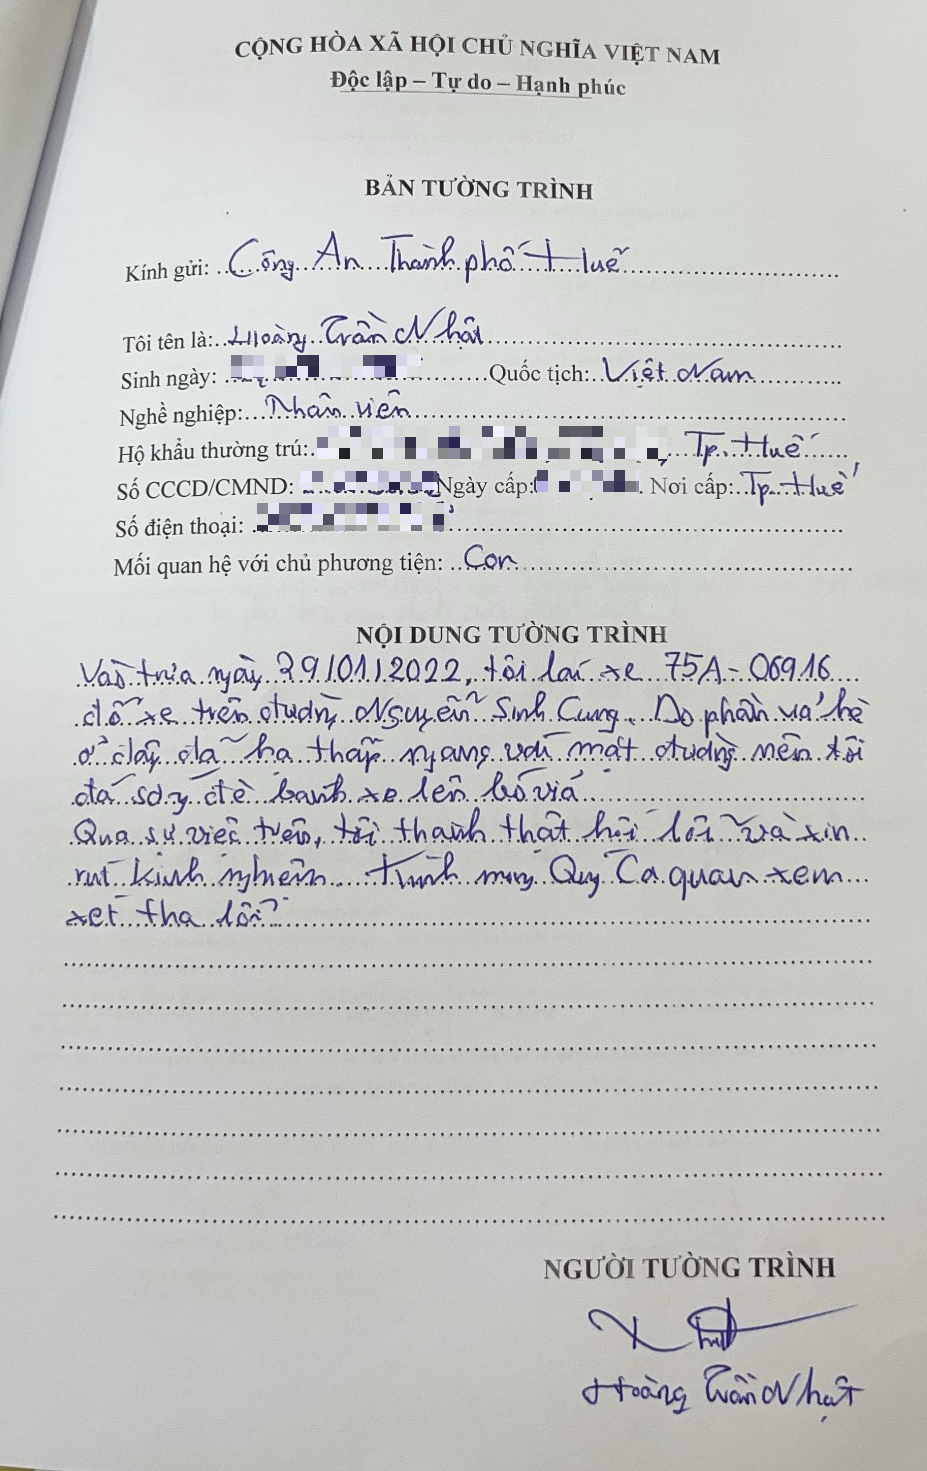 CỘNG HÒA XÃ HỘI CHỦ NGHĨA VIỆT NAM
Độc lập – Tự do – Hạnh phúc
BẢN TƯỜNG TRÌNH
Kính gửi: Công An Thành phố Huế
Tôi tên là: Hoàng Trần Nhật
Sinh ngày: Quốc tịch: Việt Nam
Nghề nghiệp: Nhân viên
Hộ khẩu thường trú: , Tp. Huế
Số CCCD/CMND: Ngày cấp: Nơi cấp: Tp. Huế
Số điện thoại:
Mối quan hệ với chủ phương tiện: Con
NỘI DUNG TƯỜNG TRÌNH
Vào trưa ngày 29/01/2022, tôi lái xe 75A-06916
đỗ xe trên đường Nguyễn Sinh Cung. Do phần vỉa hè
ở đây đã hạ thấp ngang với mặt đường nên tôi
đã sơ ý đè bánh xe lên bó vỉa
Qua sự việc trên, tôi thành thật hối lỗi và xin
rút kinh nghiệm. Kính mong Quý Cơ quan xem
xét tha lỗi.
NGƯỜI TƯỜNG TRÌNH
Hoàng Trần Nhật